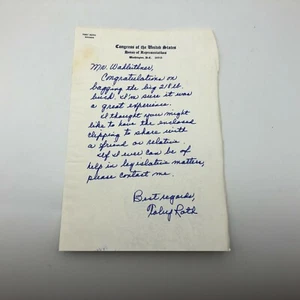 Congress of the United States
House of Representatives
Washington, D.C. 20515
Congratulations on
bagging the big 218 lb.
buck. I'm sure it was
a great experience.
I thought you might
like to have the enclosed
clipping to share with
a friend or relative.
If I ever can be of
help in legislative matters,
please contact me.
Best regards,
Toby Roth